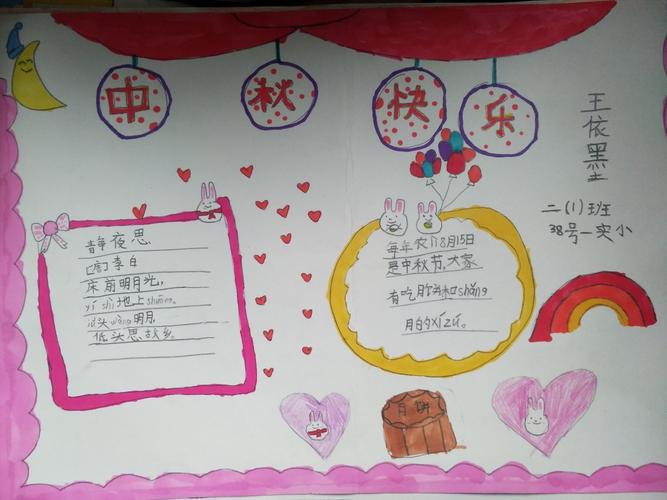 中秋快乐
王依墨
二(1)班
38号一实小
静夜思
[唐]李白
床前明月光,
yí shì地上shuāng。
jǔ头wàng明月,
低头思故乡。
每年农历8月15日
是中秋节,大家
有吃月饼和shǎng
月的xí sú。
月饼